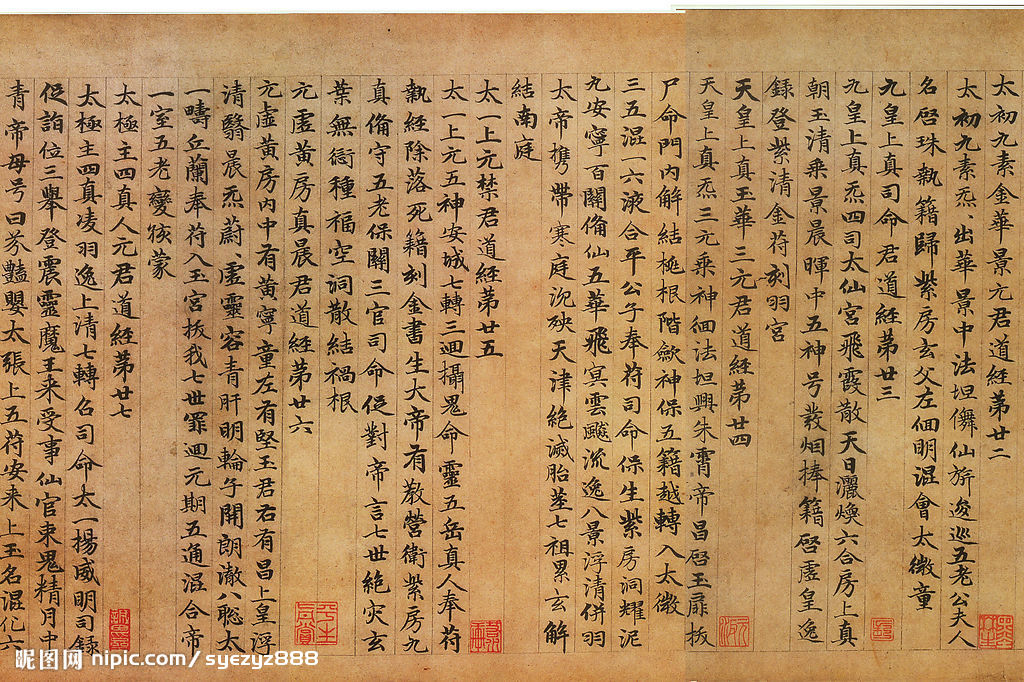 太初九素金華景元君道經第廿二
太初九素炁、出華景中法坦儛仙旂逡巡五老公夫人
名啓珠執籍歸紫房玄父左佪明混會太微童
九皇上真司命君道經第廿三
九皇上真炁四司太仙宮飛霞散天日灑煥六合房上真
朝玉清乘景晨暉中五神号裝烟捧籍啓虛皇逸
錄登紫清金苻刻羽宮
天皇上真玉華三元君道經第廿四
天皇上真炁三元乘神佪法坦興朱霄帝昌啓玉扉扳
尸命門內解結桃根階歛神保五籍越轉入太微
三五混一六液合平公子奉苻司命保生紫房洞耀泥
九安寧百關俻仙五華飛冥雲飈流逸八景浮清併羽
太帝携帶寒庭沉殃天津絶滅胎莖七祖累玄解
結南庭
太一上元禁君道經第廿五
太一上元五神安城七轉三迴攝鬼命靈五岳真人奉苻
執經除落死籍刻金書生大帝有敎營衛紫房九
真俻守五老保關三官司命促對帝言七世絶灾玄
葉無衍種福空洞散結禍根
元虛黃房真晨君道經第廿六
元虛黃房內中有黃寧童左有堅玉君右有昌上皇浮
清翳晨炁蔚、虛靈容青肝明輪子開朗澈八聡太
一疇丘蘭奉苻八玉宮扳我七世罪迴元期五通混合帝
一室五老變㣲蒙
太極主四真人元君道經第廿七
太極主四真凌羽逸上清七轉召司命太一揚威明司錄
促詣位三舉登震靈魔王来受事仙官束鬼精月中
青帝母号曰芬豔嬰太張上五苻安来上玉名混化六
昵图网 nipic.com/syezyz888